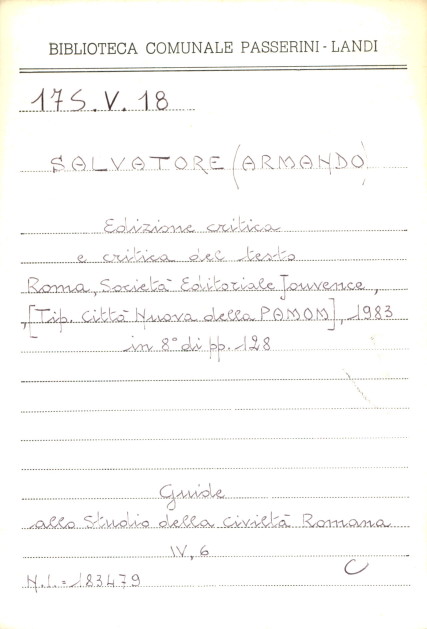 BIBLIOTECA COMUNALE PASSERINI-LANDI
17S.V.18
SALVATORE (ARMANDO)
Edizione critica
e critica del testo
Roma, Società Editoriale Jouvence,
,[Tip. Città Nuova della PAMOM], 1983
in 8° di pp. 128
Guide
allo Studio della Civiltà Romana
IV, 6
C
N.I. = 183479